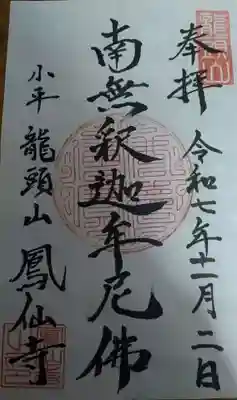 奉拝 令和七年十一月二日
南無釈迦牟尼佛
小平 龍頭山 鳳仙寺